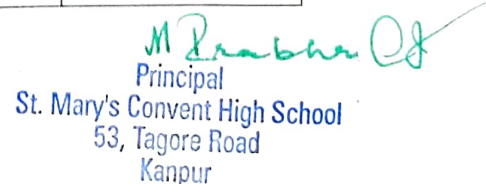 M Prabha CJ
Principal
St. Mary's Convent High School
53, Tagore Road
Kanpur